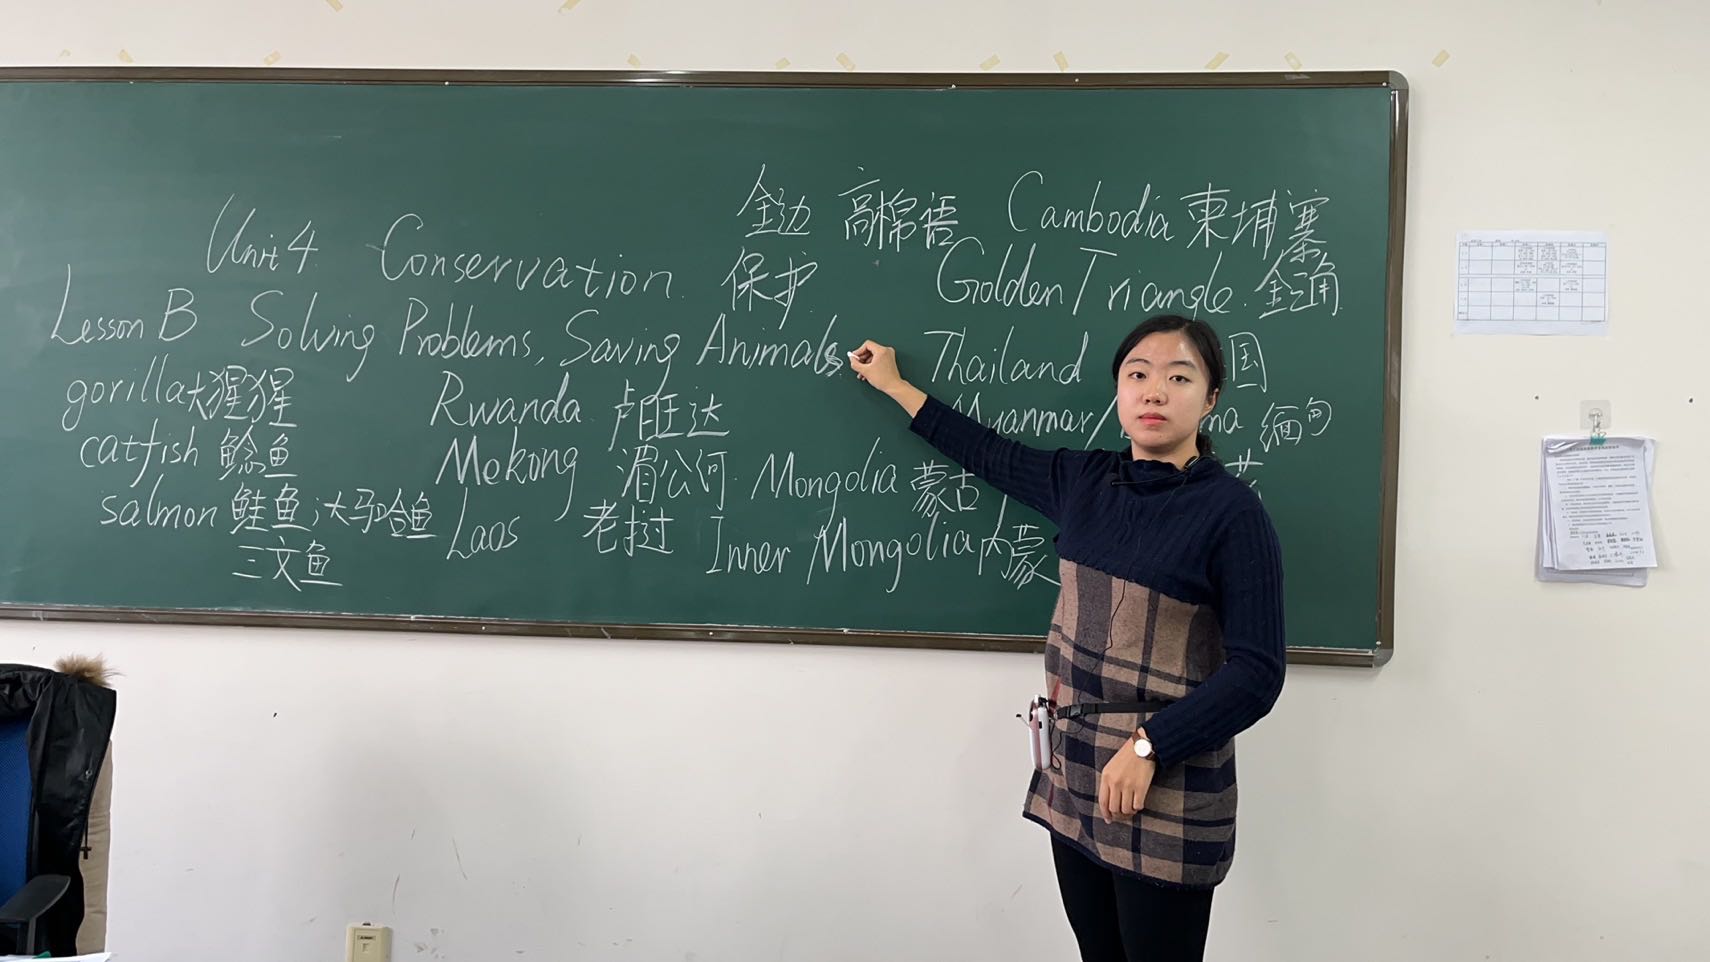 金边 高棉语 Cambodia 柬埔寨
Unit 4 Conservation 保护
Golden Triangle 金三角
Lesson B Solving Problems, Saving Animals
Thailand 国
gorilla 大猩猩
Rwanda 卢旺达
Myanmar/ 缅甸
catfish 鲶鱼
Mekong 湄公河
Mongolia 蒙古
salmon 鲑鱼;大马哈鱼
三文鱼
Laos 老挝
Inner Mongolia 内蒙